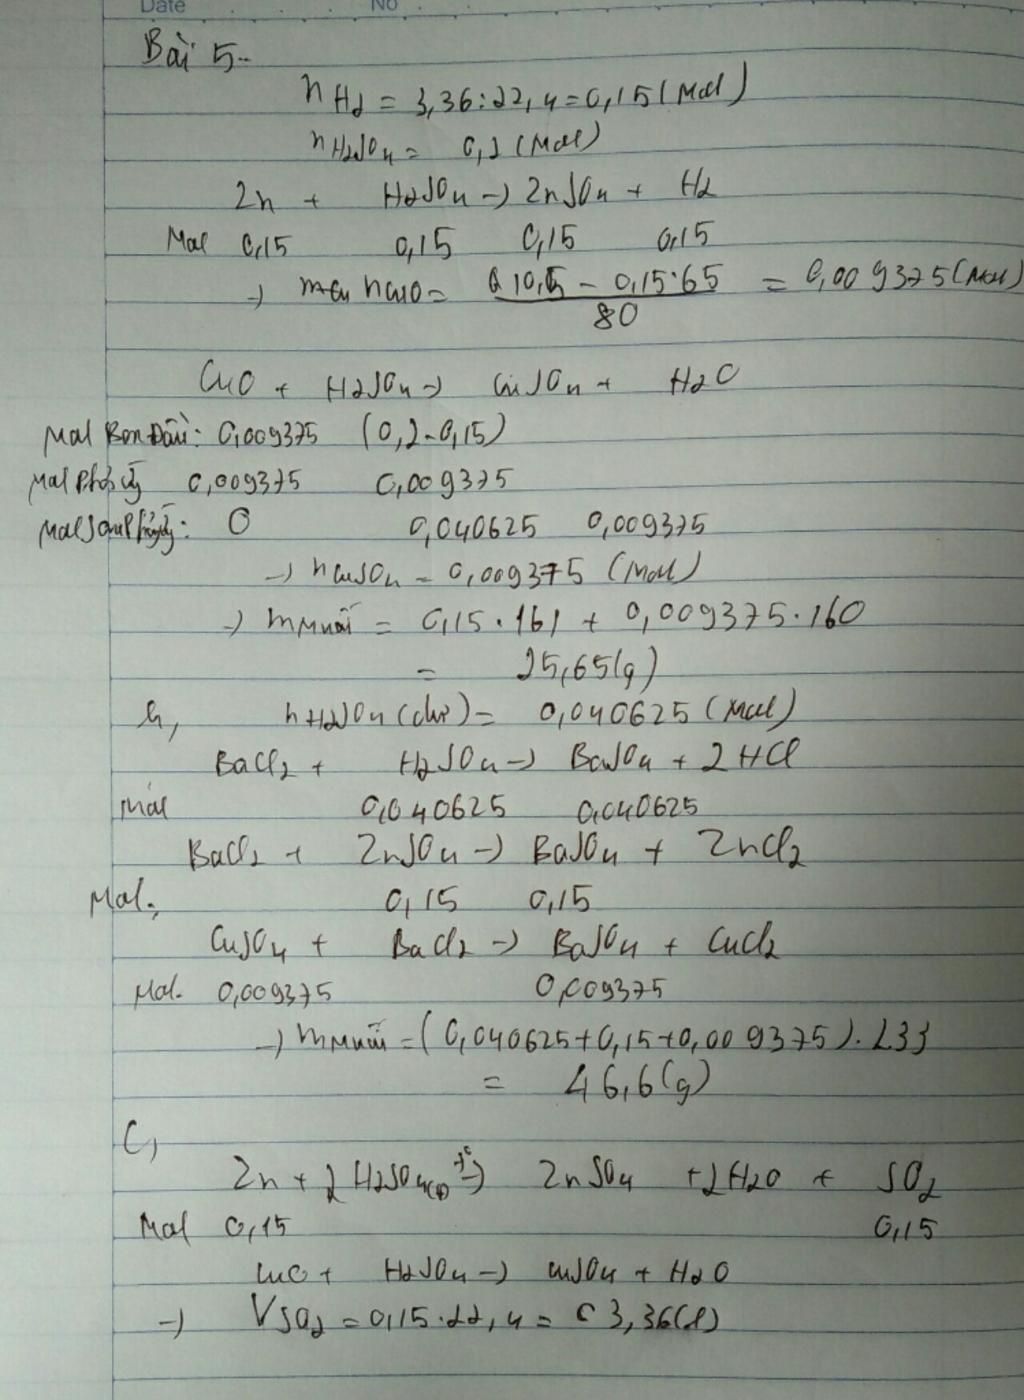 Date No
Bài 5..
nH2 = 3,36:22,4 = 0,15 (Mol)
nH2SO4 = 0,2 (Mol)
Zn + H2SO4 → ZnSO4 + H2
Mol 0,15 0,15 0,15 0,15
→ nCuO = 10,5 - 0,15.65 / 80 = 0,009375 (Mol)
CuO + H2SO4 → CuSO4 + H2O
Mol Ban Đầu: 0,009375 (0,2-0,15)
Mol Phản ứ 0,009375 0,009375
Mol Sau Phản ứ: 0 0,040625 0,009375
→ nCuSO4 = 0,009375 (Mol)
→ mMuối = 0,15.161 + 0,009375.160
= 25,65(g)
b, nH2SO4 (dư) = 0,040625 (Mol)
BaCl2 + H2SO4 → BaSO4 + 2HCl
Mol 0,040625 0,040625
BaCl2 + ZnSO4 → BaSO4 + ZnCl2
Mol. 0,15 0,15
CuSO4 + BaCl2 → BaSO4 + CuCl2
Mol. 0,009375 0,009375
→ mMuối = (0,040625+0,15+0,009375).233
= 46,6(g)
C,
Zn + 2H2SO4(đ) t°→ ZnSO4 + 2H2O + SO2
Mol 0,15 0,15
CuO + H2SO4 → CuSO4 + H2O
→ VSO2 = 0,15.22,4 = 3,36(l)